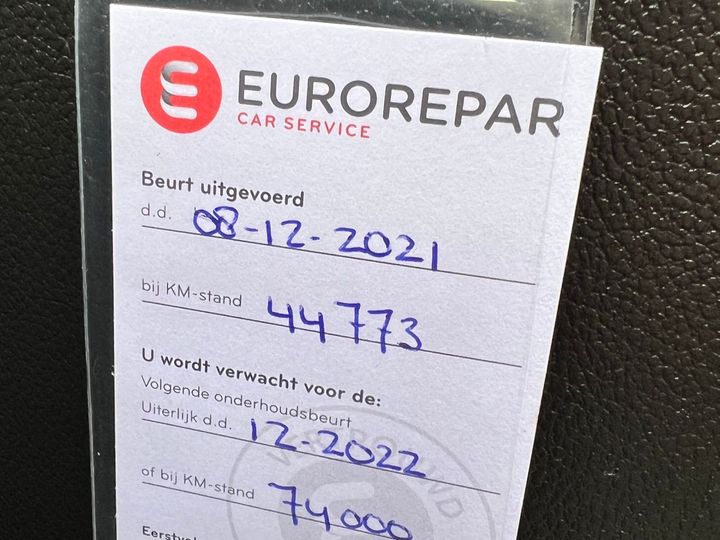 EUROREPAR
CAR SERVICE
Beurt uitgevoerd
d.d. 08-12-2021
bij KM-stand 44773
U wordt verwacht voor de:
Volgende onderhoudsbeurt
Uiterlijk d.d. 12-2022
of bij KM-stand 74000